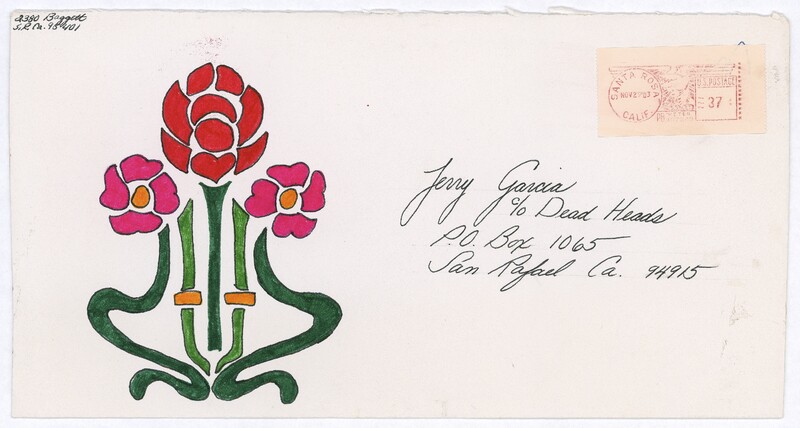 2380 Baggett
S.R. Ca. 95401
SANTA ROSA
NOV 2
CALIF.
U.S. POSTAGE
37
Jerry Garcia
c/o Dead Heads
P.O. Box 1065
San Rafael Ca. 94915